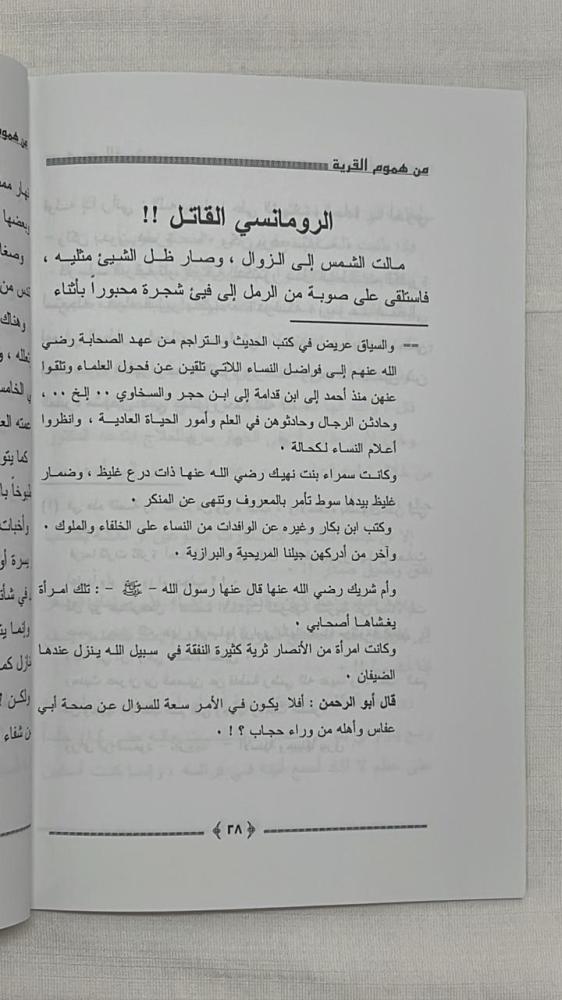 من هموم القرية
الرومانسي القاتل !!
مالت الشمس إلى الزوال ، وصار ظل الشيئ مثليه ،
فاستلقى على صوبة من الرمل إلى فيئ شجرة محبوراً بأثناء
== والسياق عريض في كتب الحديث والتراجم من عهد الصحابة رضي
الله عنهم إلى فواضل النساء اللاتي تلقين عن فحول العلماء وتلقوا
عنهن منذ أحمد إلى ابن قدامة إلى ابن حجر والسخاوي ٠٠ إلخ ٠٠ ،
وحادثن الرجال وحادثوهن في العلم وأمور الحياة العادية ، وانظروا
أعلام النساء لكحالة ٠
وكانت سمراء بنت نهيك رضي الله عنها ذات درع غليظ ، وضمار
غليظ بيدها سوط تأمر بالمعروف وتنهى عن المنكر ٠
وكتب ابن بكار وغيره عن الوافدات من النساء على الخلفاء والملوك ٠
وآخر من أدركهن جيلنا المريحية والبرازية ٠
وأم شريك رضي الله عنها قال عنها رسول الله – ﷺ – : تلك امرأة
يغشاها أصحابي ٠
وكانت امرأة من الأنصار ثرية كثيرة النفقة في سبيل الله ينزل عندها
الضيفان ٠
قال أبو الرحمن : أفلا يكون في الأمر سعة للسؤال عن صحة أبي
عفاس وأهله من وراء حجاب ؟! ٠
﴿ ٢٨ ﴾